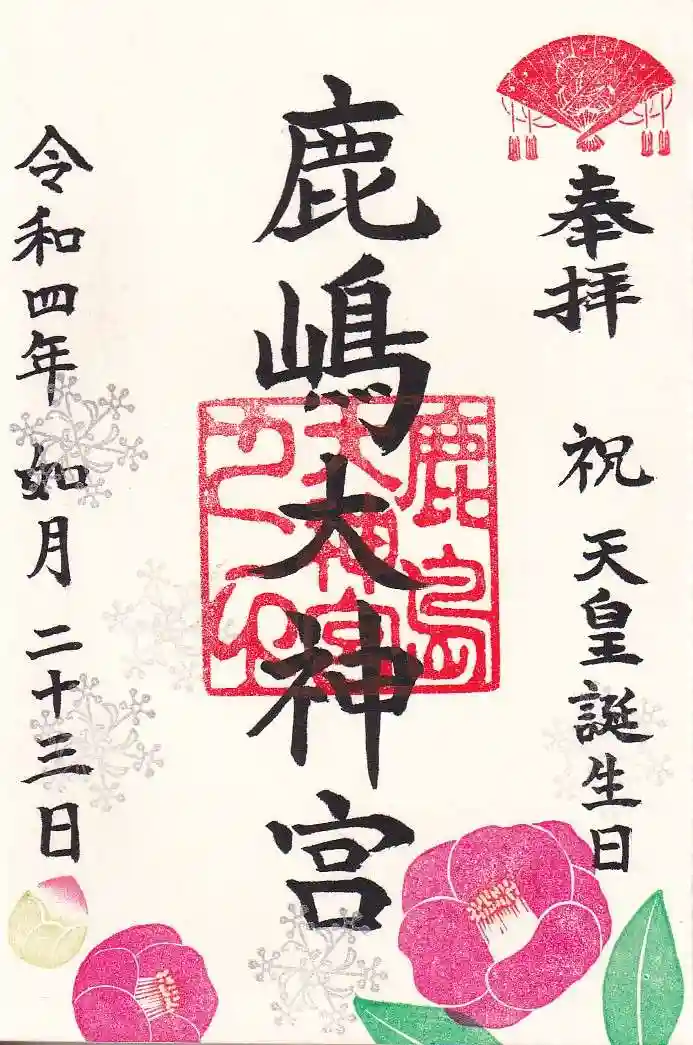 奉拝
祝 天皇誕生日
鹿嶋大神宮
令和四年 如月 二十三日
鹿島
大神宮